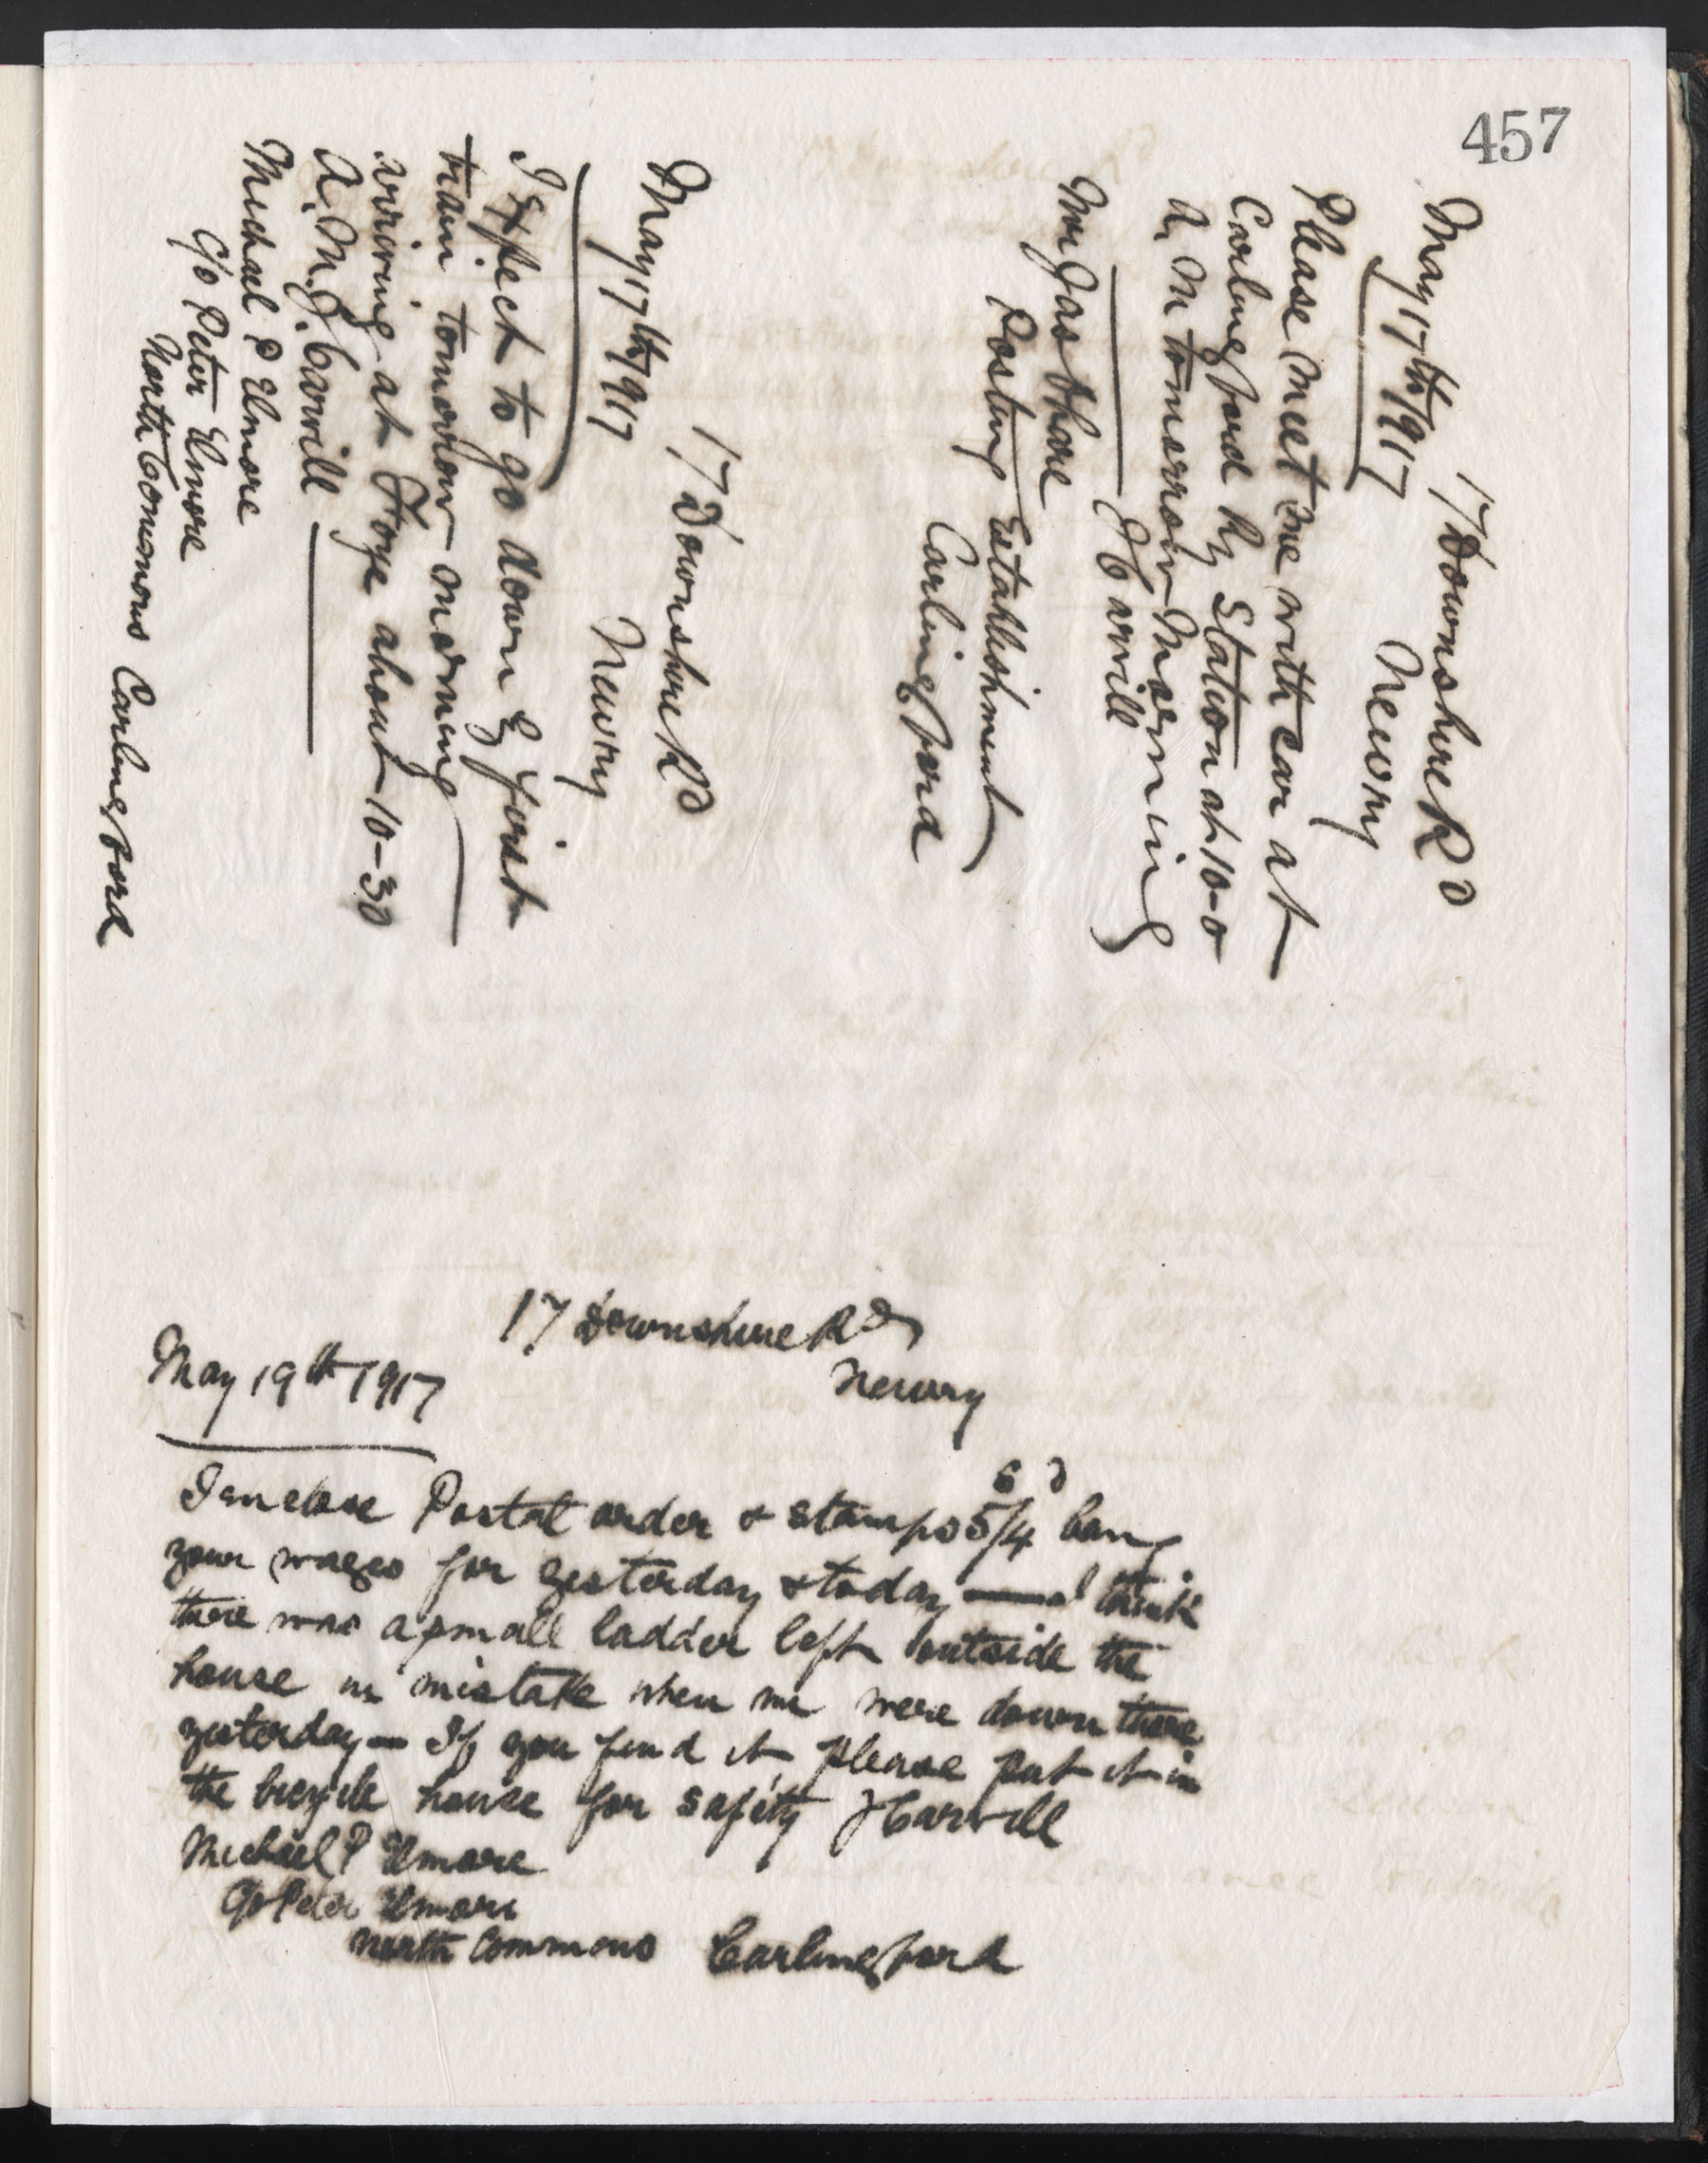 457
17 Downshire Rd
May 17th 1917
Newry
Please meet me with car at
Carlingford Ry Station at 10-0
A. M tomorrow Morning
J Carvill
Mr Jas O'hare
Posting Establishment
Carlingford
17 Downshire Rd
May 17th 1917
Newry
I Expect to go down by first
train tomorrow morning
arriving at Foye about 10-30
A. M. J. Carvill
Michael P Elmore
C/o Peter Elmore
North Commons Carlingford
17 Downshire Rd
May 19th 1917
Newry
I enclose Postal order & stamps 5/4
s d
your wages for yesterday & today — I think
there was a small ladder left outside the
house in mistake when we were down there
yesterday — If you find it please put it in
the bicycle house for safety J Carvill
Michael P Elmore
C/o Peter Elmore
North Commons Carlingford